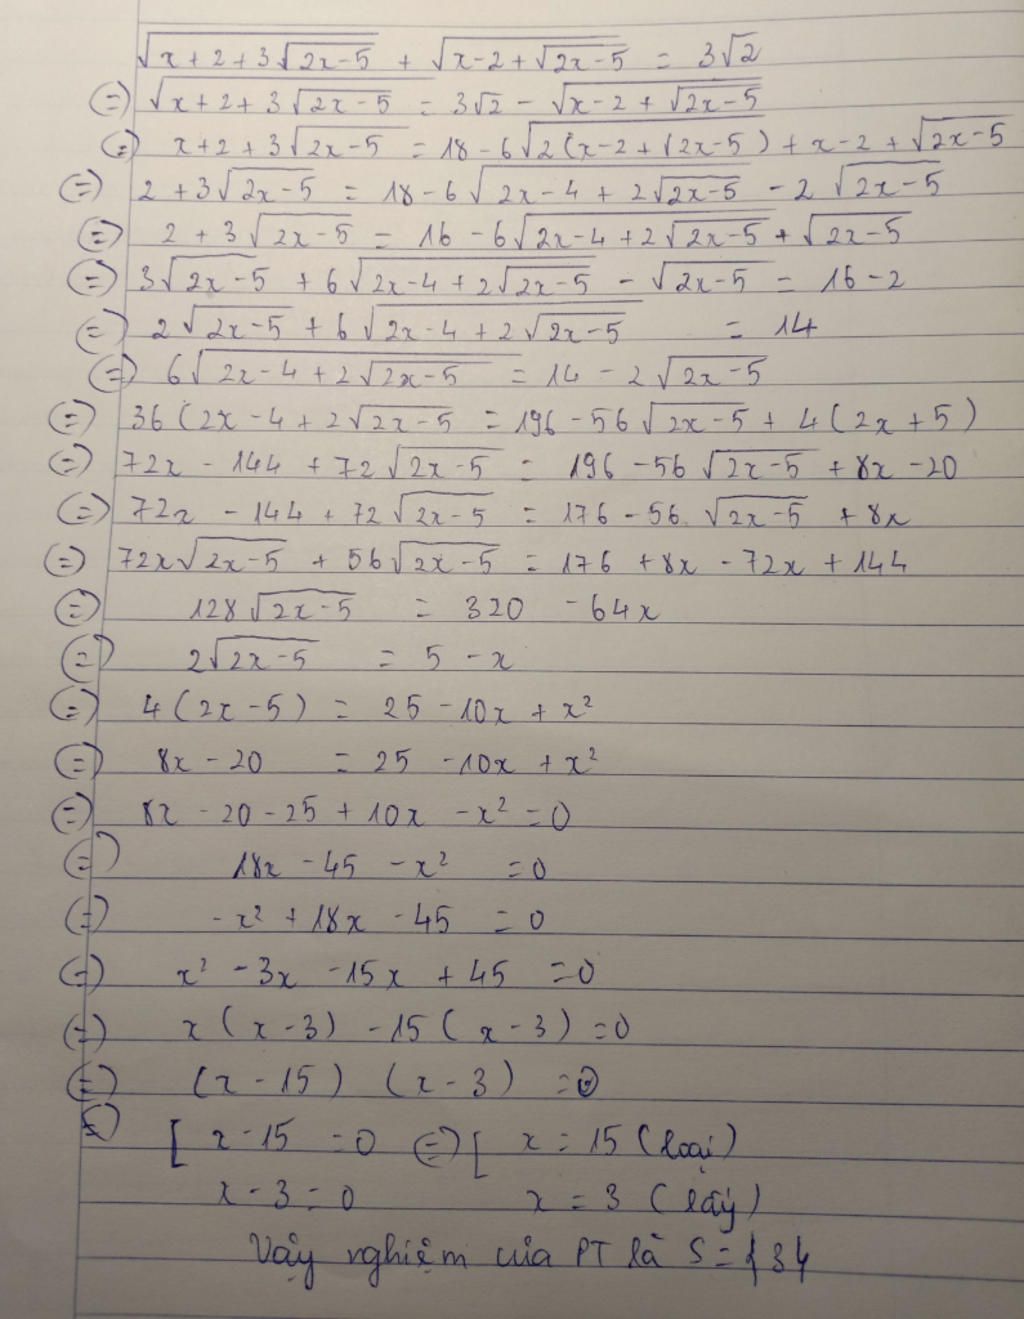 √(x+2+3√(2x-5)) + √(x-2+√(2x-5)) = 3√2
(=) √(x+2+3√(2x-5)) = 3√2 - √(x-2+√(2x-5))
(=) x+2+3√(2x-5) = 18-6√(2(x-2+√(2x-5)) + x-2+√(2x-5)
(=) 2+3√(2x-5) = 18-6√(2x-4+2√(2x-5)) - 2 √(2x-5)
(=) 2+3√(2x-5) = 16-6√(2x-4+2√(2x-5)) + √(2x-5)
(=) 3√(2x-5) + 6√(2x-4+2√(2x-5)) - √(2x-5) = 16-2
(=) 2√(2x-5) + 6√(2x-4+2√(2x-5)) = 14
(=) 6√(2x-4+2√(2x-5)) = 14-2√(2x-5)
(=) 36(2x-4+2√(2x-5) = 196-56√(2x-5) + 4(2x+5)
(=) 72x-144+72√(2x-5) = 196-56√(2x-5) + 8x-20
(=) 72x-144+72√(2x-5) = 176-56.√(2x-5) + 8x
(=) 72x√(2x-5) + 56√(2x-5) = 176+8x-72x+144
(=) 128√(2x-5) = 320-64x
(=) 2√(2x-5) = 5-x
(=) 4(2x-5) = 25-10x+x²
(=) 8x-20 = 25-10x+x²
(=) 8x-20-25+10x-x² = 0
(=) 18x-45-x² = 0
(=) -x²+18x-45 = 0
(=) x²-3x-15x+45 = 0
(=) x(x-3)-15(x-3) = 0
(=) (x-15) (x-3) = 0
(=) [ x-15 = 0 (=) [ x = 15 (loại)
x-3 = 0 x = 3 (lấy)
Vậy nghiệm của PT là S = {3}